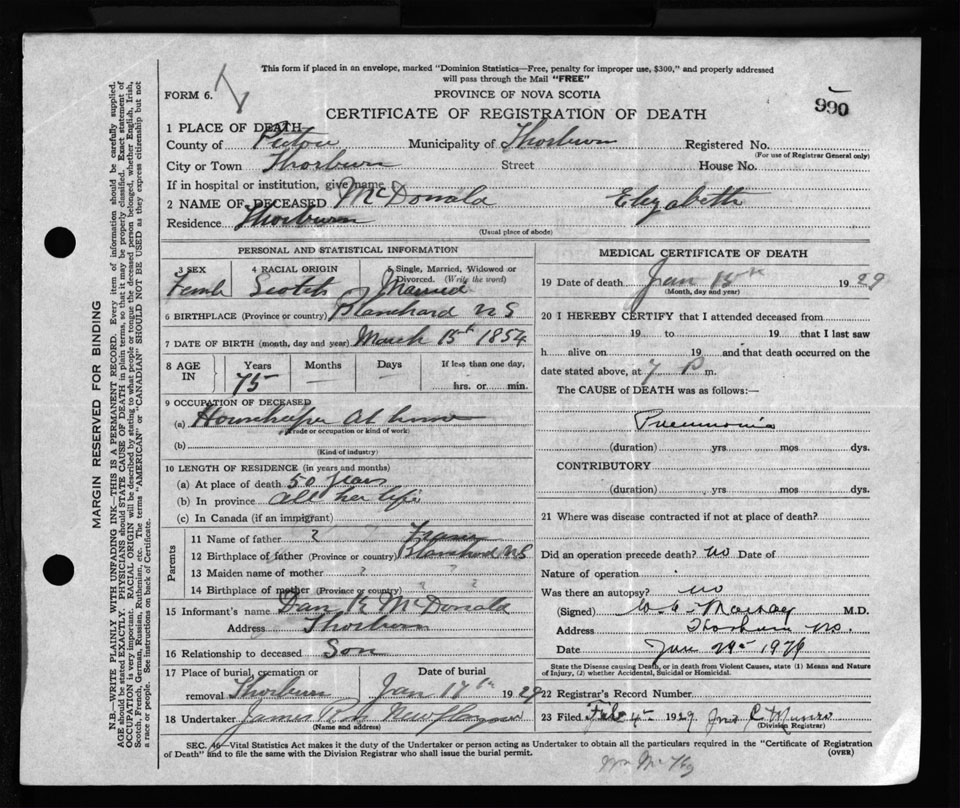 This form if placed in an envelope, marked "Dominion Statistics—Free, penalty for improper use, $300," and properly addressed
will pass through the Mail "FREE"
FORM 6.
PROVINCE OF NOVA SCOTIA
990
CERTIFICATE OF REGISTRATION OF DEATH
1 PLACE OF DEATH
County of Pictou Municipality of Thorburn Registered No.
(For use of Registrar General only)
City or Town Thorburn Street House No.
If in hospital or institution, give name
2 NAME OF DECEASED McDonald Elizabeth
Residence Thorburn
(Usual place of abode)
PERSONAL AND STATISTICAL INFORMATION
3 SEX 4 RACIAL ORIGIN 5 Single, Married, Widowed or
Divorced. (Write the word)
Female Scotch Married
6 BIRTHPLACE (Province or country) Blanchard N S
7 DATE OF BIRTH (month, day and year) March 15th 1854
8 AGE IN Years Months Days If less than one day,
75 — — hrs. or min.
9 OCCUPATION OF DECEASED
(a) Housekeeper At home
(Trade or occupation or kind of work)
(b)
(Kind of industry)
10 LENGTH OF RESIDENCE (in years and months)
(a) At place of death 50 years
(b) In province all her life
(c) In Canada (if an immigrant)
Parents
11 Name of father ?
12 Birthplace of father (Province or country) Blanchard NS
13 Maiden name of mother ?
14 Birthplace of mother (Province or country) ?
15 Informant's name Dan McDonald
Address Thorburn
16 Relationship to deceased Son
17 Place of burial, cremation or Date of burial
removal Thorburn Jan 17th 1929
18 Undertaker James
(Name and address)
MEDICAL CERTIFICATE OF DEATH
19 Date of death Jan 15th 1929
(Month, day and year)
20 I HEREBY CERTIFY that I attended deceased from
19 to 19 that I last saw
h alive on 19 and that death occurred on the
date stated above, at 7 P m.
The CAUSE of DEATH was as follows:—
Pneumonia
(duration) yrs mos dys.
CONTRIBUTORY
(duration) yrs. mos dys.
21 Where was disease contracted if not at place of death?
Did an operation precede death? no Date of
Nature of operation
Was there an autopsy? no
(Signed) M.D.
Address Thorburn NS.
Date
State the Disease causing Death, or in death from Violent Causes, state (1) Means and Nature
of Injury, (2) whether Accidental, Suicidal or Homicidal.
22 Registrar's Record Number
23 Filed Feb 4 1929 Munro
(Division Registrar)
SEC. 46—Vital Statistics Act makes it the duty of the Undertaker or person acting as Undertaker to obtain all the particulars required in the "Certificate of Registration
of Death" and to file the same with the Division Registrar who shall issue the burial permit.
(OVER)
MARGIN RESERVED FOR BINDING
N.B.—WRITE PLAINLY WITH UNFADING INK—THIS IS A PERMANENT RECORD. Every item of information should be carefully supplied.
AGE should be stated EXACTLY. PHYSICIANS should STATE CAUSE OF DEATH in plain terms, so that it may be properly classified. Exact statement of
OCCUPATION is very important. RACIAL ORIGIN will be described by stating to what people or tongue the deceased person belonged, whether English, Irish,
Scotch, French, German, Russian, Ruthenian, etc. The terms "AMERICAN" or "CANADIAN" SHOULD NOT BE USED as they express citizenship but not
a race or people. See instructions on back of Certificate.